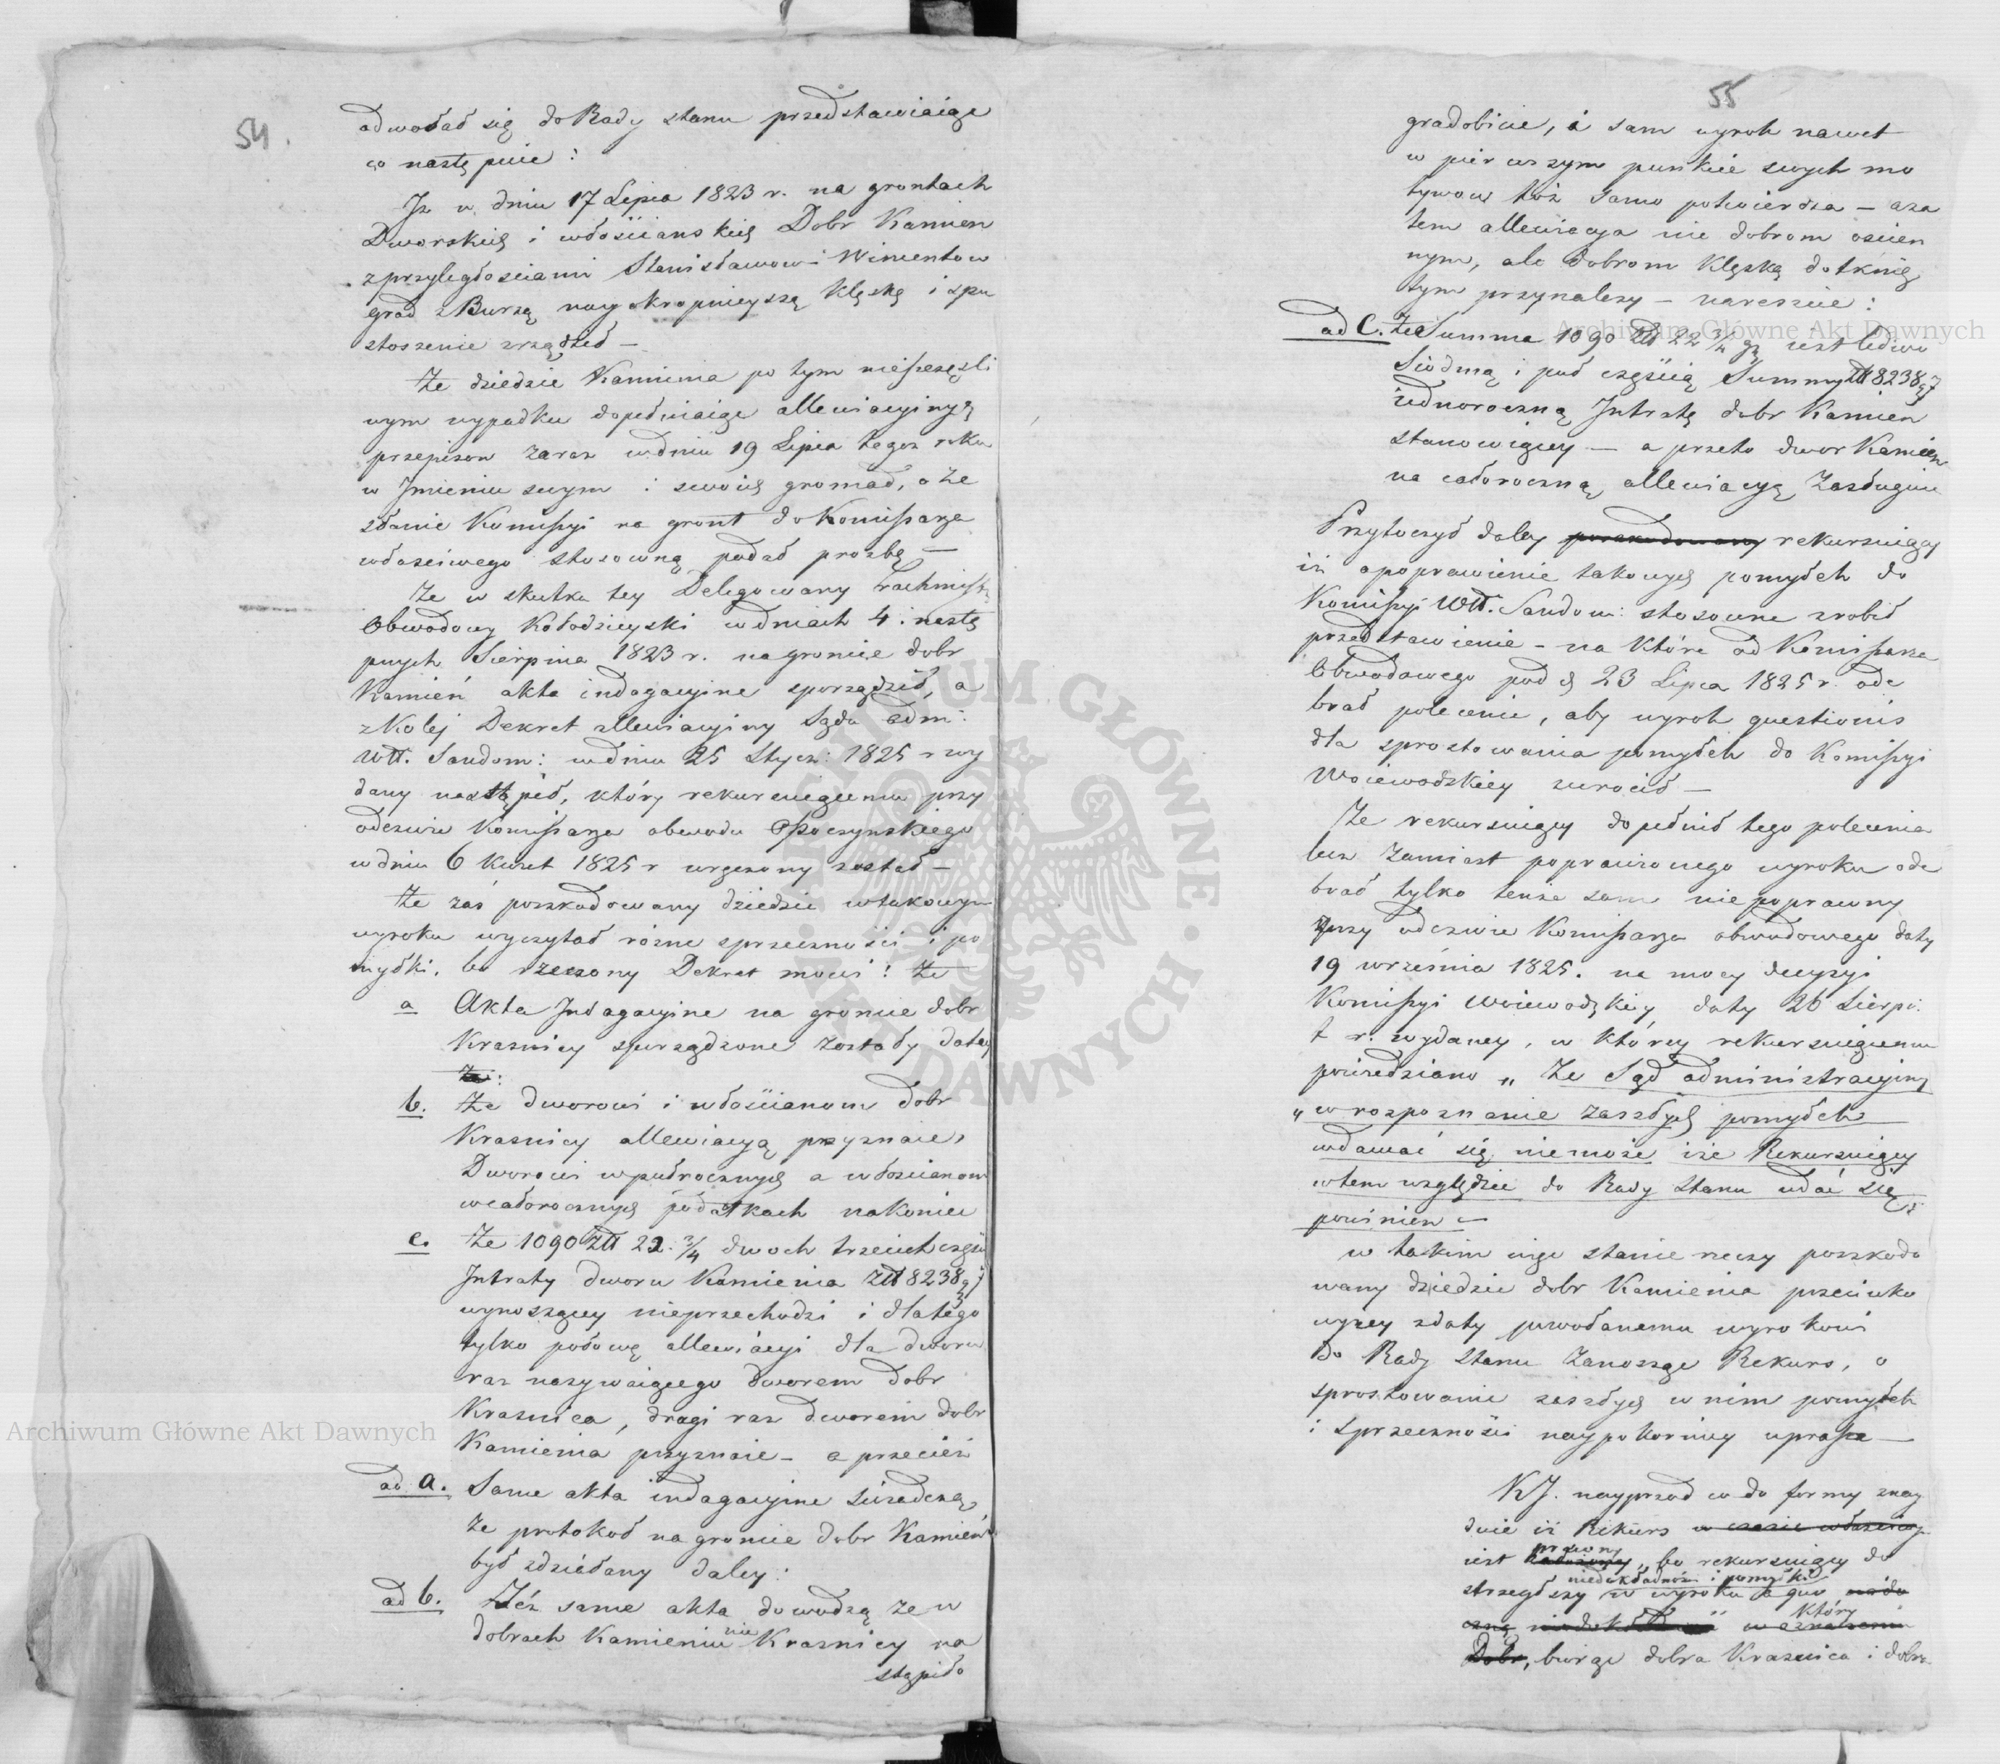 54.
odwołać się do Rady stanu przedstawiaiąc
co następuie:
Iż w dniu 17 Lipca 1823 r. na grontach
Dworskich i włościanskich Dobr Kamien
z przyległosciami Stanisławow i Wincentow
grad z Burzą nayokropnieyszą klęskę i spu
stoszenie zrządził —
Że dziedzic Kamienia po tym nieszczęśli
wym wypadku dopełniaiąc allewiacyinych
przepisow zaraz w dniu 19 Lipca tegoż roku
w Imieniu swym i swoich gromad, o ze
słanie Komissyi na gront do Kommissarza
właściwego stosowną podał prozbę —
Że w skutku tey Delegowany Rachmistrz
Obwodowy Kołodzieyski w dniach 4 i nastę
pnych Sierpnia 1823 r. na groncie dobr
Kamień akta indagacyine sporządził, a
z Kolej Dekret allewiacyiny Sądu adm:
Wtt. Sandom: w dniu 25 Stycz: 1825 r wy
dany nastąpił, który rekursuiącemu przy
odezwie Kommissarza obwodu Opoczynskiego
w dniu 6 Kwiet 1825 r wręczony został —
Że zaś poszkodowany dziedzic w takowym
wyroku wyczytał rózne sprzeczności i po
myłki, bo rzeczony Dekret mowi: że
a Akta Indagacyine na groncie dobr
Krasnicy sporządzone zostały daley
że:
b. że dworowi i włościanom dobr
Krasnicy allewiacyą przyznaie,
Dworowi w połrocznych a włościanom
w całorocznych podatkach nakoniec
c. Że 1090 Ztt 22 3/4 dwoch trzecich części
Intraty dworu Kamienia Ztt 8238 g 7
wynoszącey nieprzechodzi i dlatego
tylko połowę allewiacyi dla dworu
raz nazywaiącego dworem dobr
Krasnica, drugi raz dworem dobr
Kamienia przyznaie — a przecież
ad a. Same akta indagacyine swiadczą,
że protokoł na groncie dobr Kamień
był zdziałany daley:
ad b. Też same akta dowodzą że w
dobrach Kamieniu nie Krasnicy na
stąpiło
55
gradobicie, i sam wyrok nawet
w pierwszym punkcie swych mo
tywow toż samo potwierdza — aza
tem allewiacya nie dobrom oscien
nym, ale dobrom klęską dotknię
tym przynależy — nareszcie:
ad C. że Summa 1090 Ztt 22 3/4 gr iest ledwo
Siodmą i puł częścią Summy Ztt 8238 g 7
iednoroczną Intratę dobr Kamien
stanowiącey — a przeto dwor Kamien
na całoroczną allewiacyą zasługuie
Przytoczył daley poszkodowany rekursuiący
iż o poprawienie takowych pomyłek do
Komissyi Wtt. Sandom: stosowne zrobił
przedstawienie — na które od Kommissarza
Obwodowego pod d 23 Lipca 1825 r. ode
brał polecenie, aby wyrok questionis
dla sprostowania pomyłek do Komissyi
Woiewodzkiey zwrocił —
Że rekursuiący dopełnił tego polecenia
lecz zamiast poprawionego wyroku ode
brał tylko tenże sam niepoprawny
przy odezwie Kommissarza obwodowego daty
19 września 1825. na mocy decyzyi
Komissyi Woiewodzkiey daty 26 Sierp:
t r. wydaney, w którey rekursuiącemu
powiedziano „ Że Sąd administracyiny
„ w rozpoznanie zaszłych pomyłek
wdawać się niemoże iże Rekursuiący
w tem względzie do Rady Stanu udać się
powinien —
w takim więc stanie rzeczy poszkodo
wany dziedzic dobr Kamienia przeciwko
wyzey zdaty powołanemu wyrokowi
do Rady Stanu zanosząc Rekurs, o
sprostowanie zaszłych w nim pomyłek
i sprzeczności naypokorniey uprasza —
KJ. nayprzod co do formy znay
duie iż Rekurs w czasie właściwy
iest prawny założony, bo rekursuiący do
strzegłszy niedokładności i pomyłki w wyroku a quo
który
Dobr, biorąc dobra Krasnica i dobra
Archiwum Główne Akt Dawnych
Archiwum Główne Akt Dawnych
ARCHIWUM GŁÓWNE · AKT DAWNYCH ·